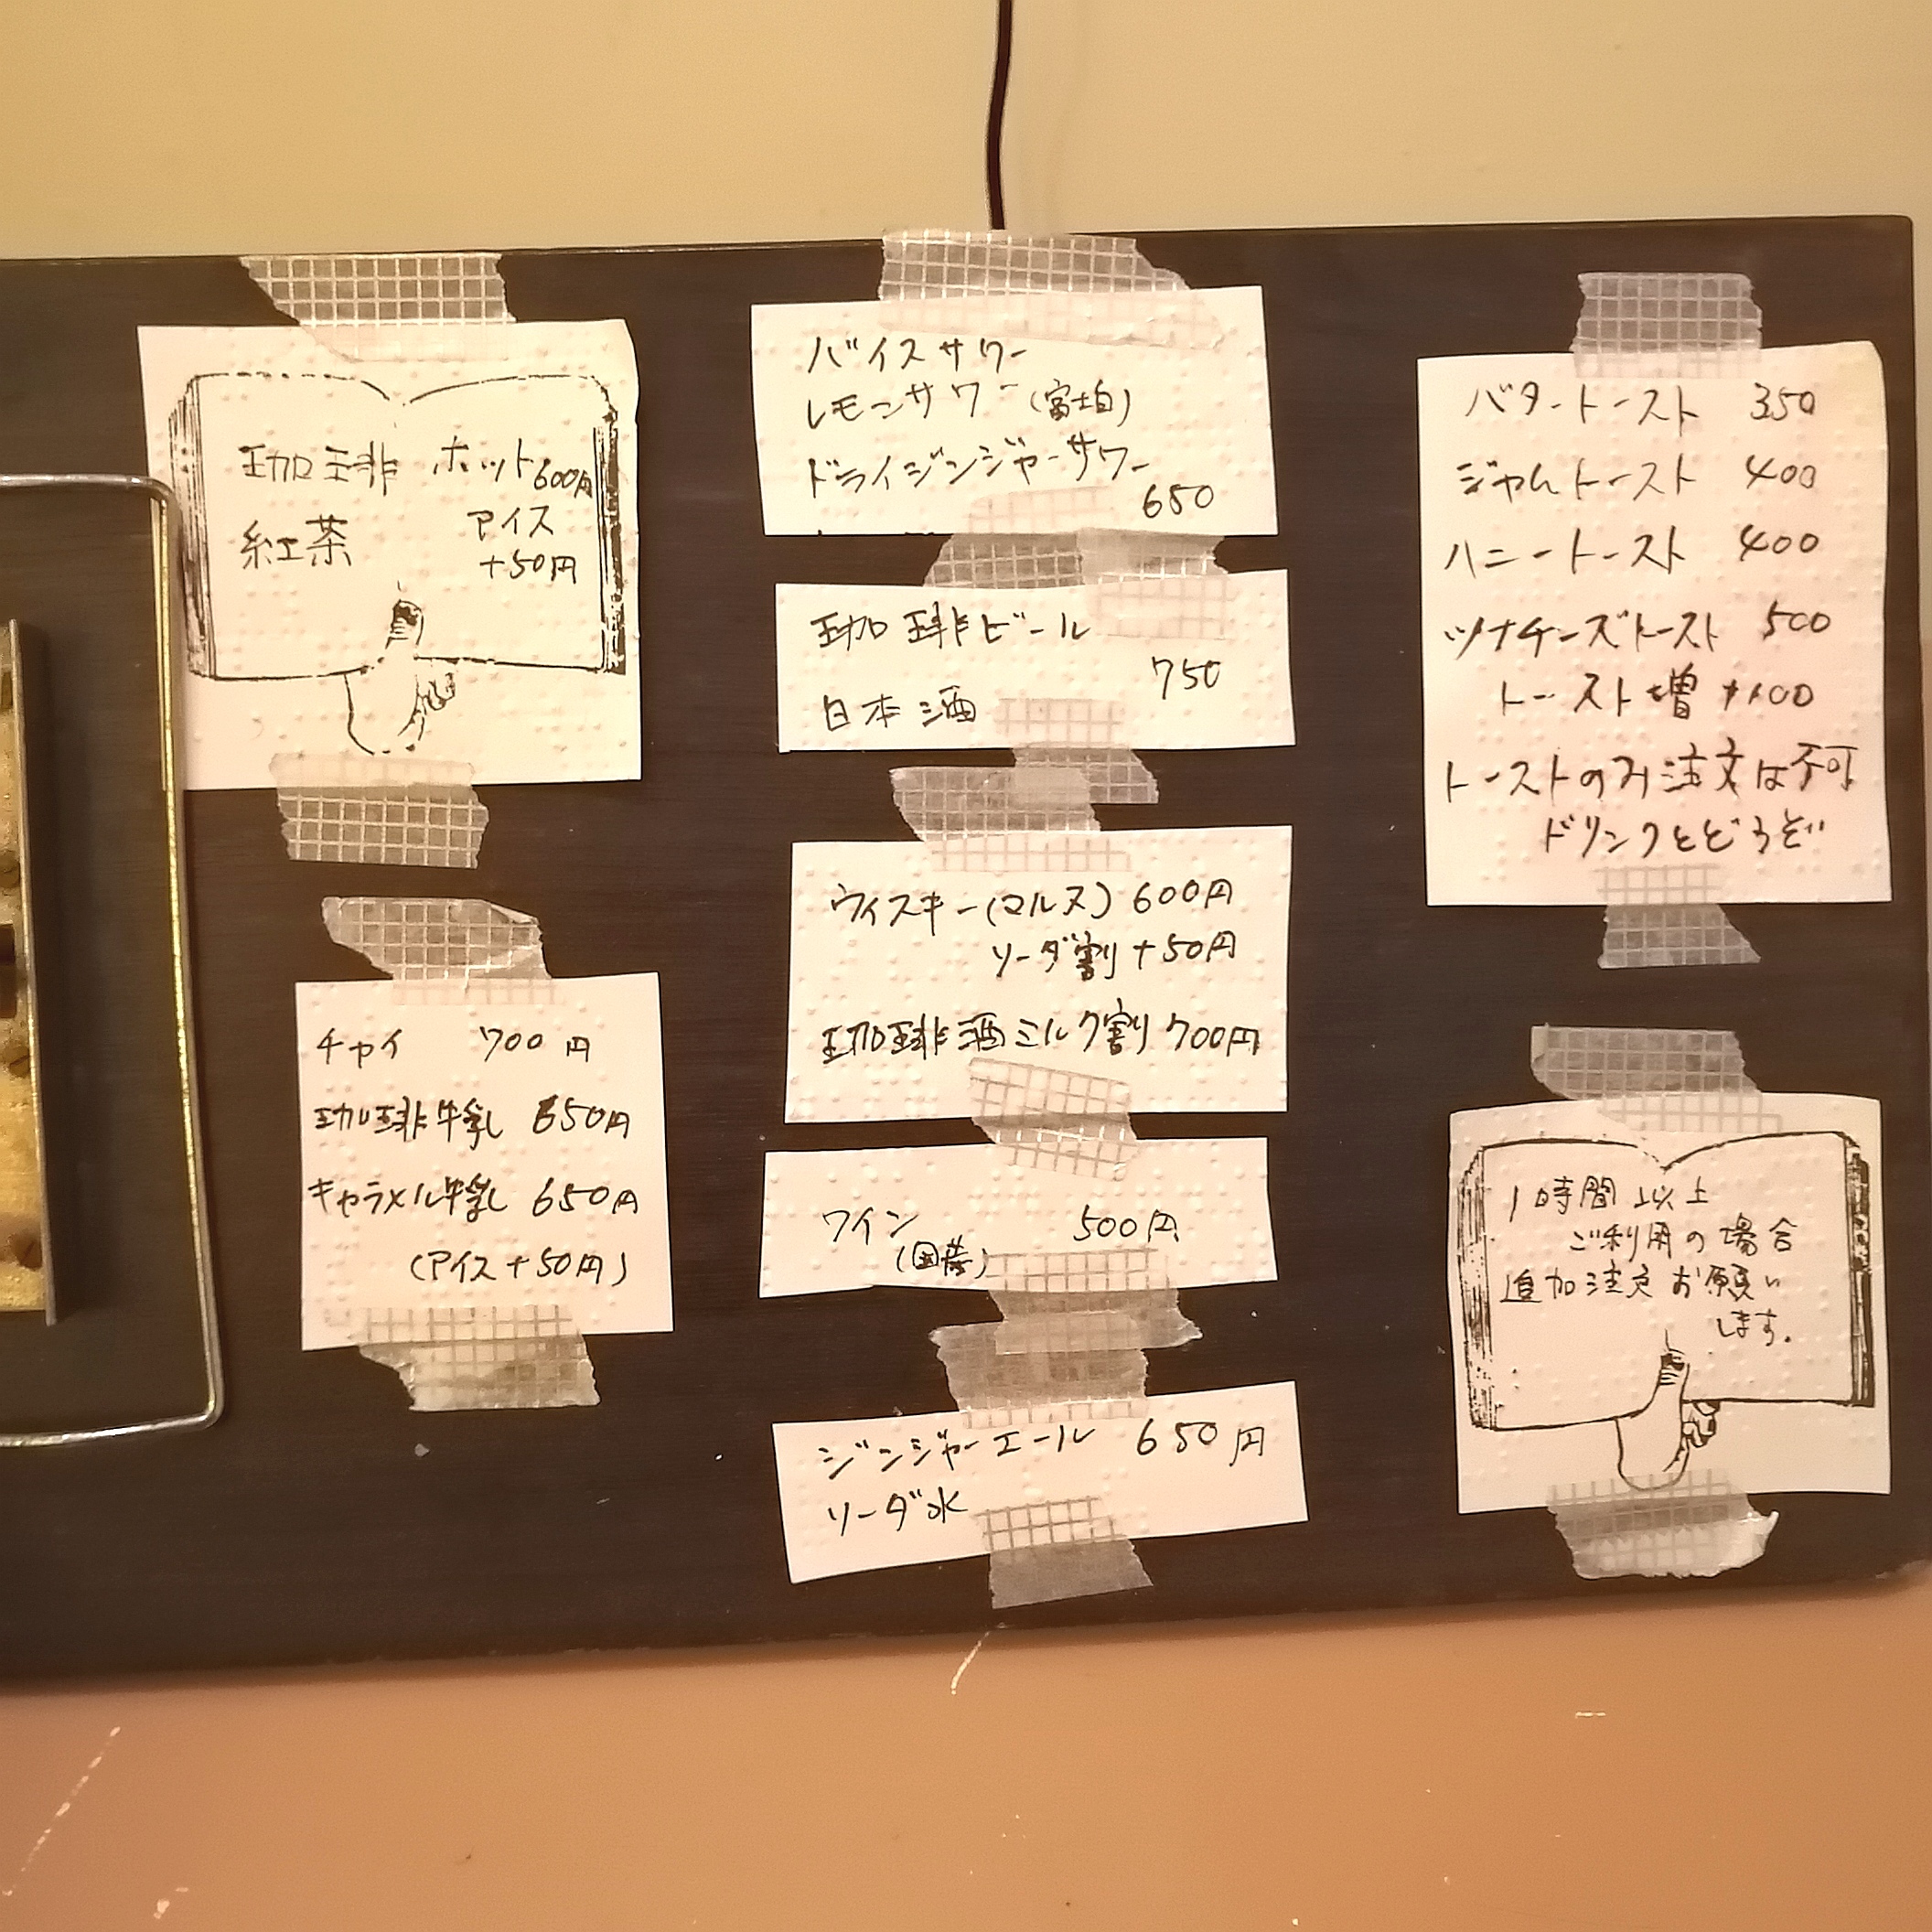 珈琲 ホット600円
紅茶 アイス
+50円
チャイ 700円
珈琲牛乳 650円
キャラメル牛乳 650円
(アイス+50円)
バイスサワー
レモンサワー(富士白)
ドライジンジャーサワー
650
珈琲ビール
750
日本酒
ウィスキー(マルス) 600円
ソーダ割+50円
珈琲酒ミルク割 700円
ワイン 500円
ジンジャーエール 650円
ソーダ水
バタートースト 350
ジャムトースト 400
ハニートースト 400
ツナチーズトースト 500
トースト増 +100
トーストのみ注文は不可
ドリンクとどうぞ
1時間以上
ご利用の場合
追加注文お願い
します。